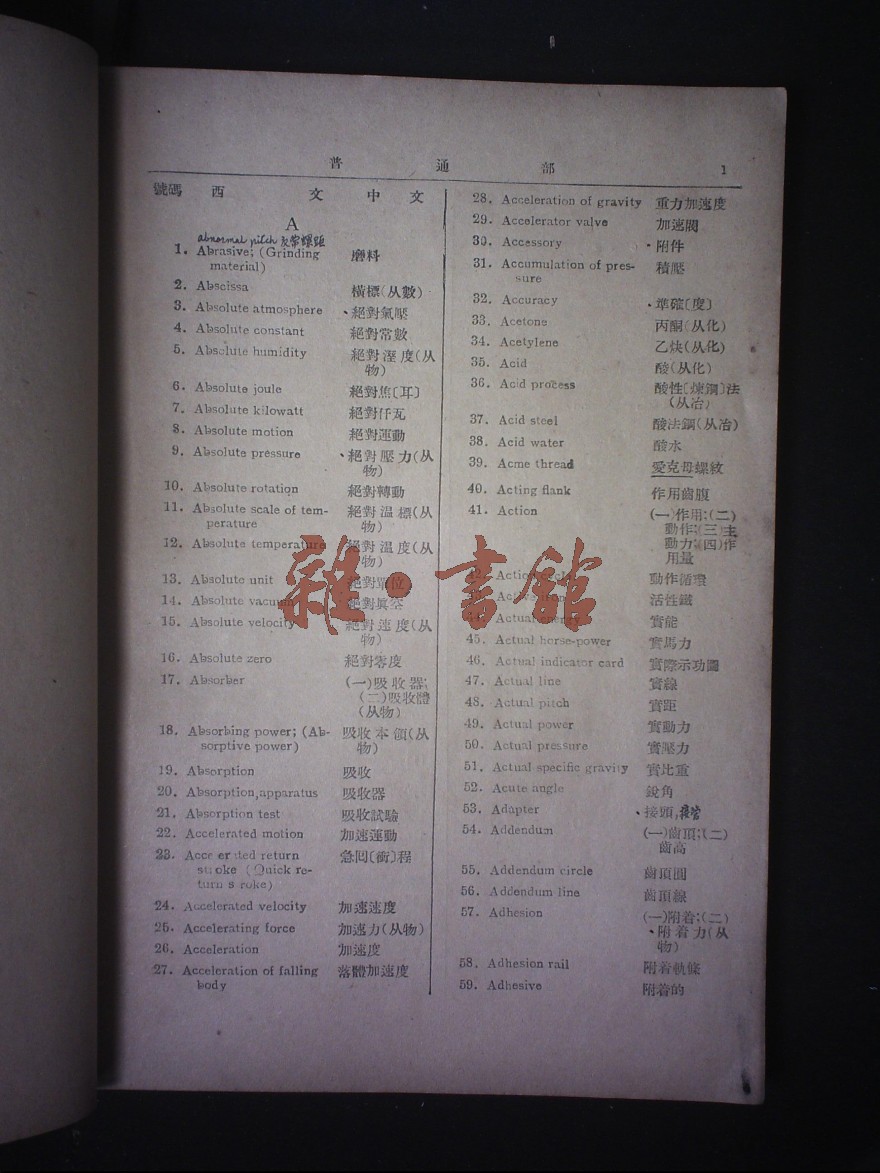 普 通 部 1
號碼 西 文 中 文
A
abnormal pitch 反常螺距
1. Abrasive; (Grinding 磨料
material)
2. Abscissa 橫標(从數)
3. Absolute atmosphere 、絕對氣壓
4. Absolute constant 絕對常數
5. Absolute humidity 絕對溼度(从
物)
6. Absolute joule 絕對焦〔耳〕
7. Absolute kilowatt 絕對仟瓦
8. Absolute motion 絕對運動
9. Absolute pressure 、絕對壓力(从
物)
10. Absolute rotation 絕對轉動
11. Absolute scale of tem- 絕對温標(从
perature 物)
12. Absolute temperature 絕對温度(从
物)
13. Absolute unit 絕對單位
14. Absolute vacuum 絕對眞空
15. Absolute velocity 絕對速度(从
物)
16. Absolute zero 絕對零度
17. Absorber (一)吸收器;
(二)吸收體
(从物)
18. Absorbing power; (Ab- 吸收本領(从
sorptive power) 物)
19. Absorption 吸收
20. Absorption apparatus 吸收器
21. Absorption test 吸收試驗
22. Accelerated motion 加速運動
23. Accelerated return 急囘〔衝〕程
stroke (Quick re-
turn stroke)
24. Accelerated velocity 加速速度
25. Accelerating force 加速力(从物)
26. Acceleration 加速度
27. Acceleration of falling 落體加速度
body
28. Acceleration of gravity 重力加速度
29. Accelerator valve 加速閥
30. Accessory 、附件
31. Accumulation of pres- 積壓
sure
32. Accuracy 、準確〔度〕
33. Acetone 丙酮(从化)
34. Acetylene 乙炔(从化)
35. Acid 酸(从化)
36. Acid process 酸性〔煉鋼〕法
(从冶)
37. Acid steel 酸法鋼(从冶)
38. Acid water 酸水
39. Acme thread 愛克母螺紋
40. Acting flank 作用齒腹
41. Action (一)作用;(二)
動作;(三)主
動力;(四)作
用量
42. Action cycle 動作循環
43. Active iron 活性鐵
44. Actual energy 實能
45. Actual horse-power 實馬力
46. Actual indicator card 實際示功圖
47. Actual line 實線
48. Actual pitch 實距
49. Actual power 實動力
50. Actual pressure 實壓力
51. Actual specific gravity 實比重
52. Acute angle 銳角
53. Adapter 、接頭,接管
54. Addendum (一)齒頂;(二)
齒高
55. Addendum circle 齒頂圓
56. Addendum line 齒頂線
57. Adhesion (一)附着;(二)
、附着力(从
物)
58. Adhesion rail 附着軌條
59. Adhesive 附着的
雜·書館